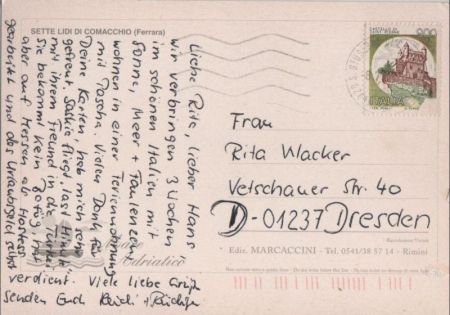 SETTE LIDI DI COMACCHIO (Ferrara)
Liebe Rita, lieber Hans
wir verbringen 3 Wochen
im schönen Italien mit
Sonne, Meer + Faulenzen
wohnen in einer Ferienwohnung
mit Pascha. Vielen Dank für
Deine Karten, hab mich sehr
gefreut. Saskia fliegt
mit ihrem Freund in die Türkei
sie bekommt kein Bafög, hat
aber auf Messen als Hostess
gearbeitet und das Urlaubsgeld selbst
verdient. Viele liebe Grüße
senden Euch
900
ITALIA
Frau
Rita Wacker
Vetschauer Str. 40
D-01237 Dresden
Adriatico
Ediz. MARCACCINI - Tel. 0541/38 57 14 - Rimini